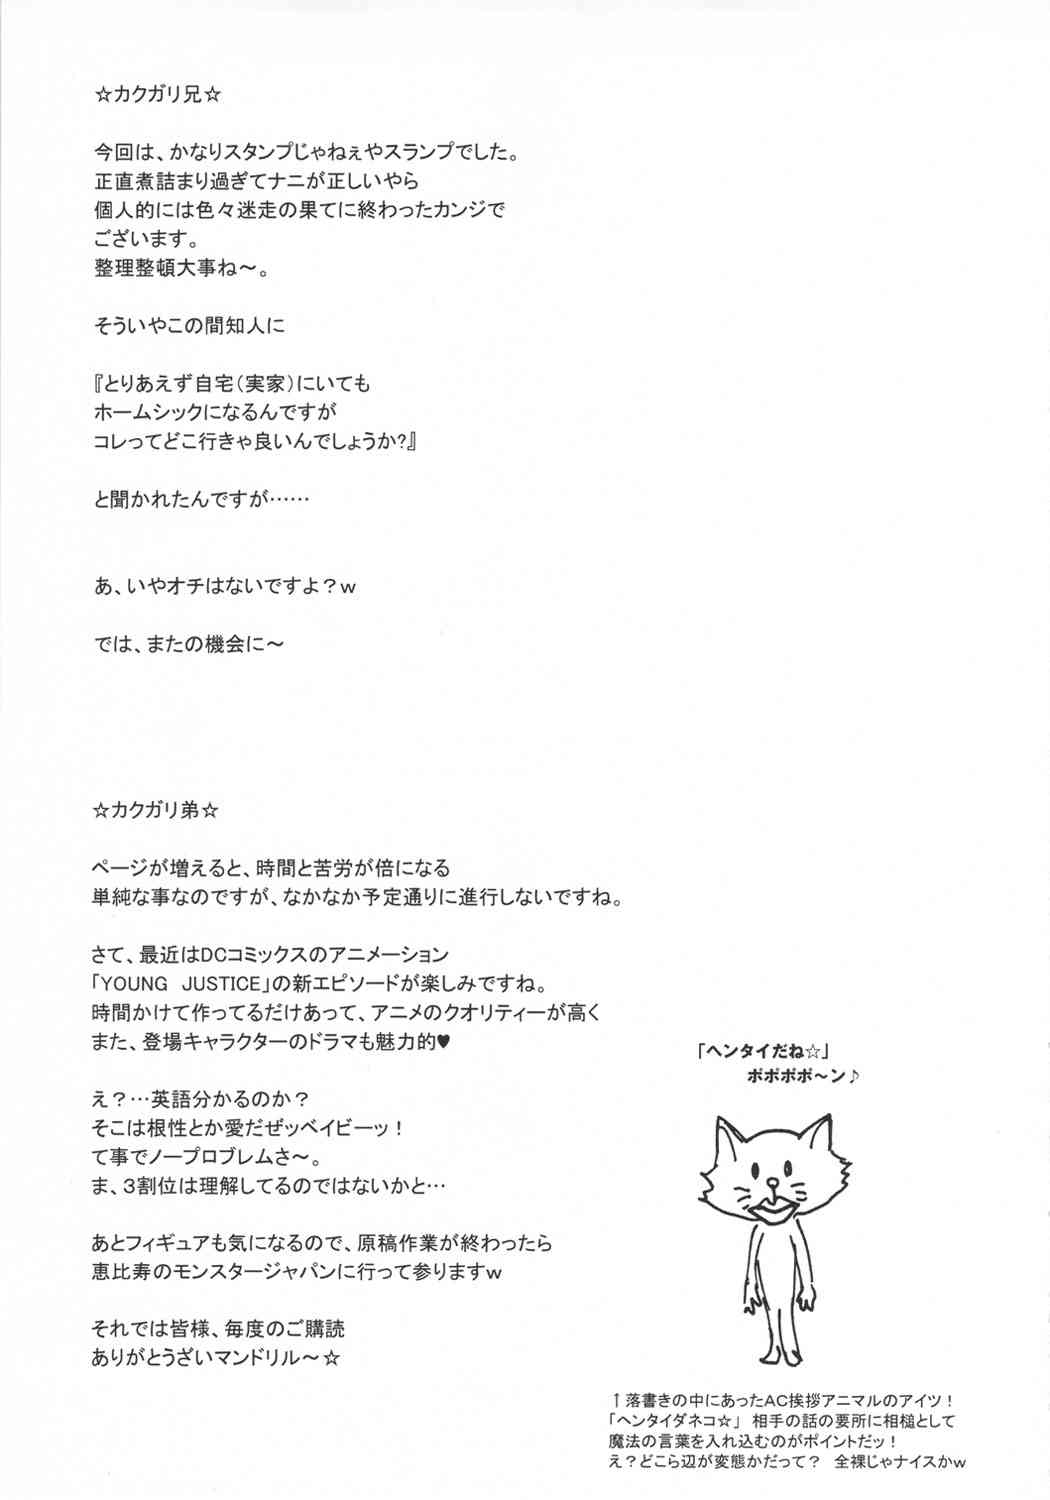 ☆カクガリ兄☆
今回は、かなりスタンプじゃねぇやスランプでした。
正直煮詰まり過ぎてナニが正しいやら
個人的には色々迷走の果てに終わったカンジで
ございます。
整理整頓大事ね～。
そういやこの間知人に
『とりあえず自宅（実家）にいても
ホームシックになるんですが
コレってどこ行きゃ良いんでしょうか?』
と聞かれたんですが……
あ、いやオチはないですよ？ｗ
では、またの機会に～
☆カクガリ弟☆
ページが増えると、時間と苦労が倍になる
単純な事なのですが、なかなか予定通りに進行しないですね。
さて、最近はDCコミックスのアニメーション
「YOUNG JUSTICE」の新エピソードが楽しみですね。
時間かけて作ってるだけあって、アニメのクオリティーが高く
また、登場キャラクターのドラマも魅力的♥
え？…英語分かるのか？
そこは根性とか愛だぜッベイビーッ！
て事でノープロブレムさ～。
ま、３割位は理解してるのではないかと…
あとフィギュアも気になるので、原稿作業が終わったら
恵比寿のモンスタージャパンに行って参りますｗ
それでは皆様、毎度のご購読
ありがとうざいマンドリル～☆
「ヘンタイだね☆」
ポポポポ～ン♪
↑落書きの中にあったAC挨拶アニマルのアイツ！
「ヘンタイダネコ☆」 相手の話の要所に相槌として
魔法の言葉を入れ込むのがポイントだッ！
え？どこら辺が変態かだって？ 全裸じゃナイスかｗ